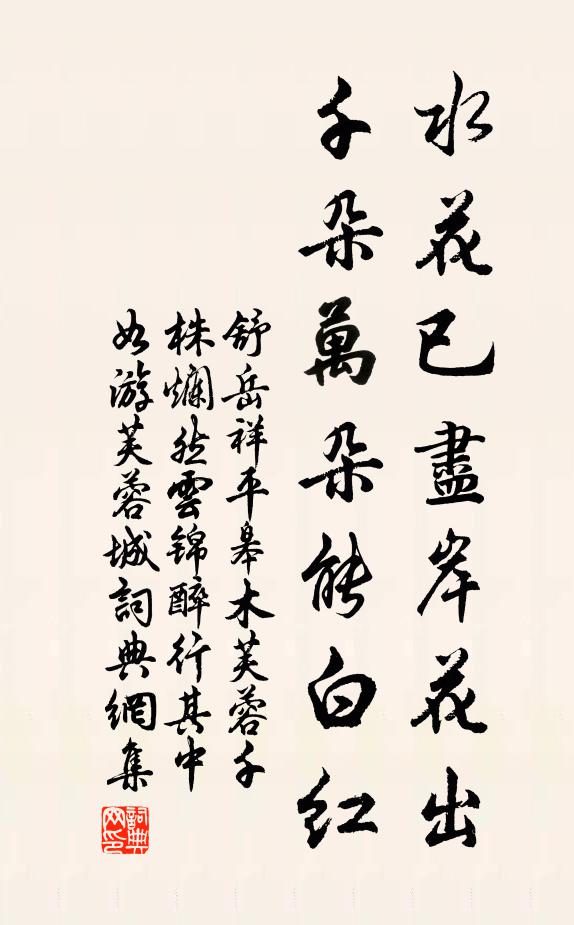 水花已盡岸花出
千朵萬朵能白紅
舒岳祥平皋木芙蓉千
株爛然雲錦醉行其中
如游芙蓉城詞典網集
詞典網印